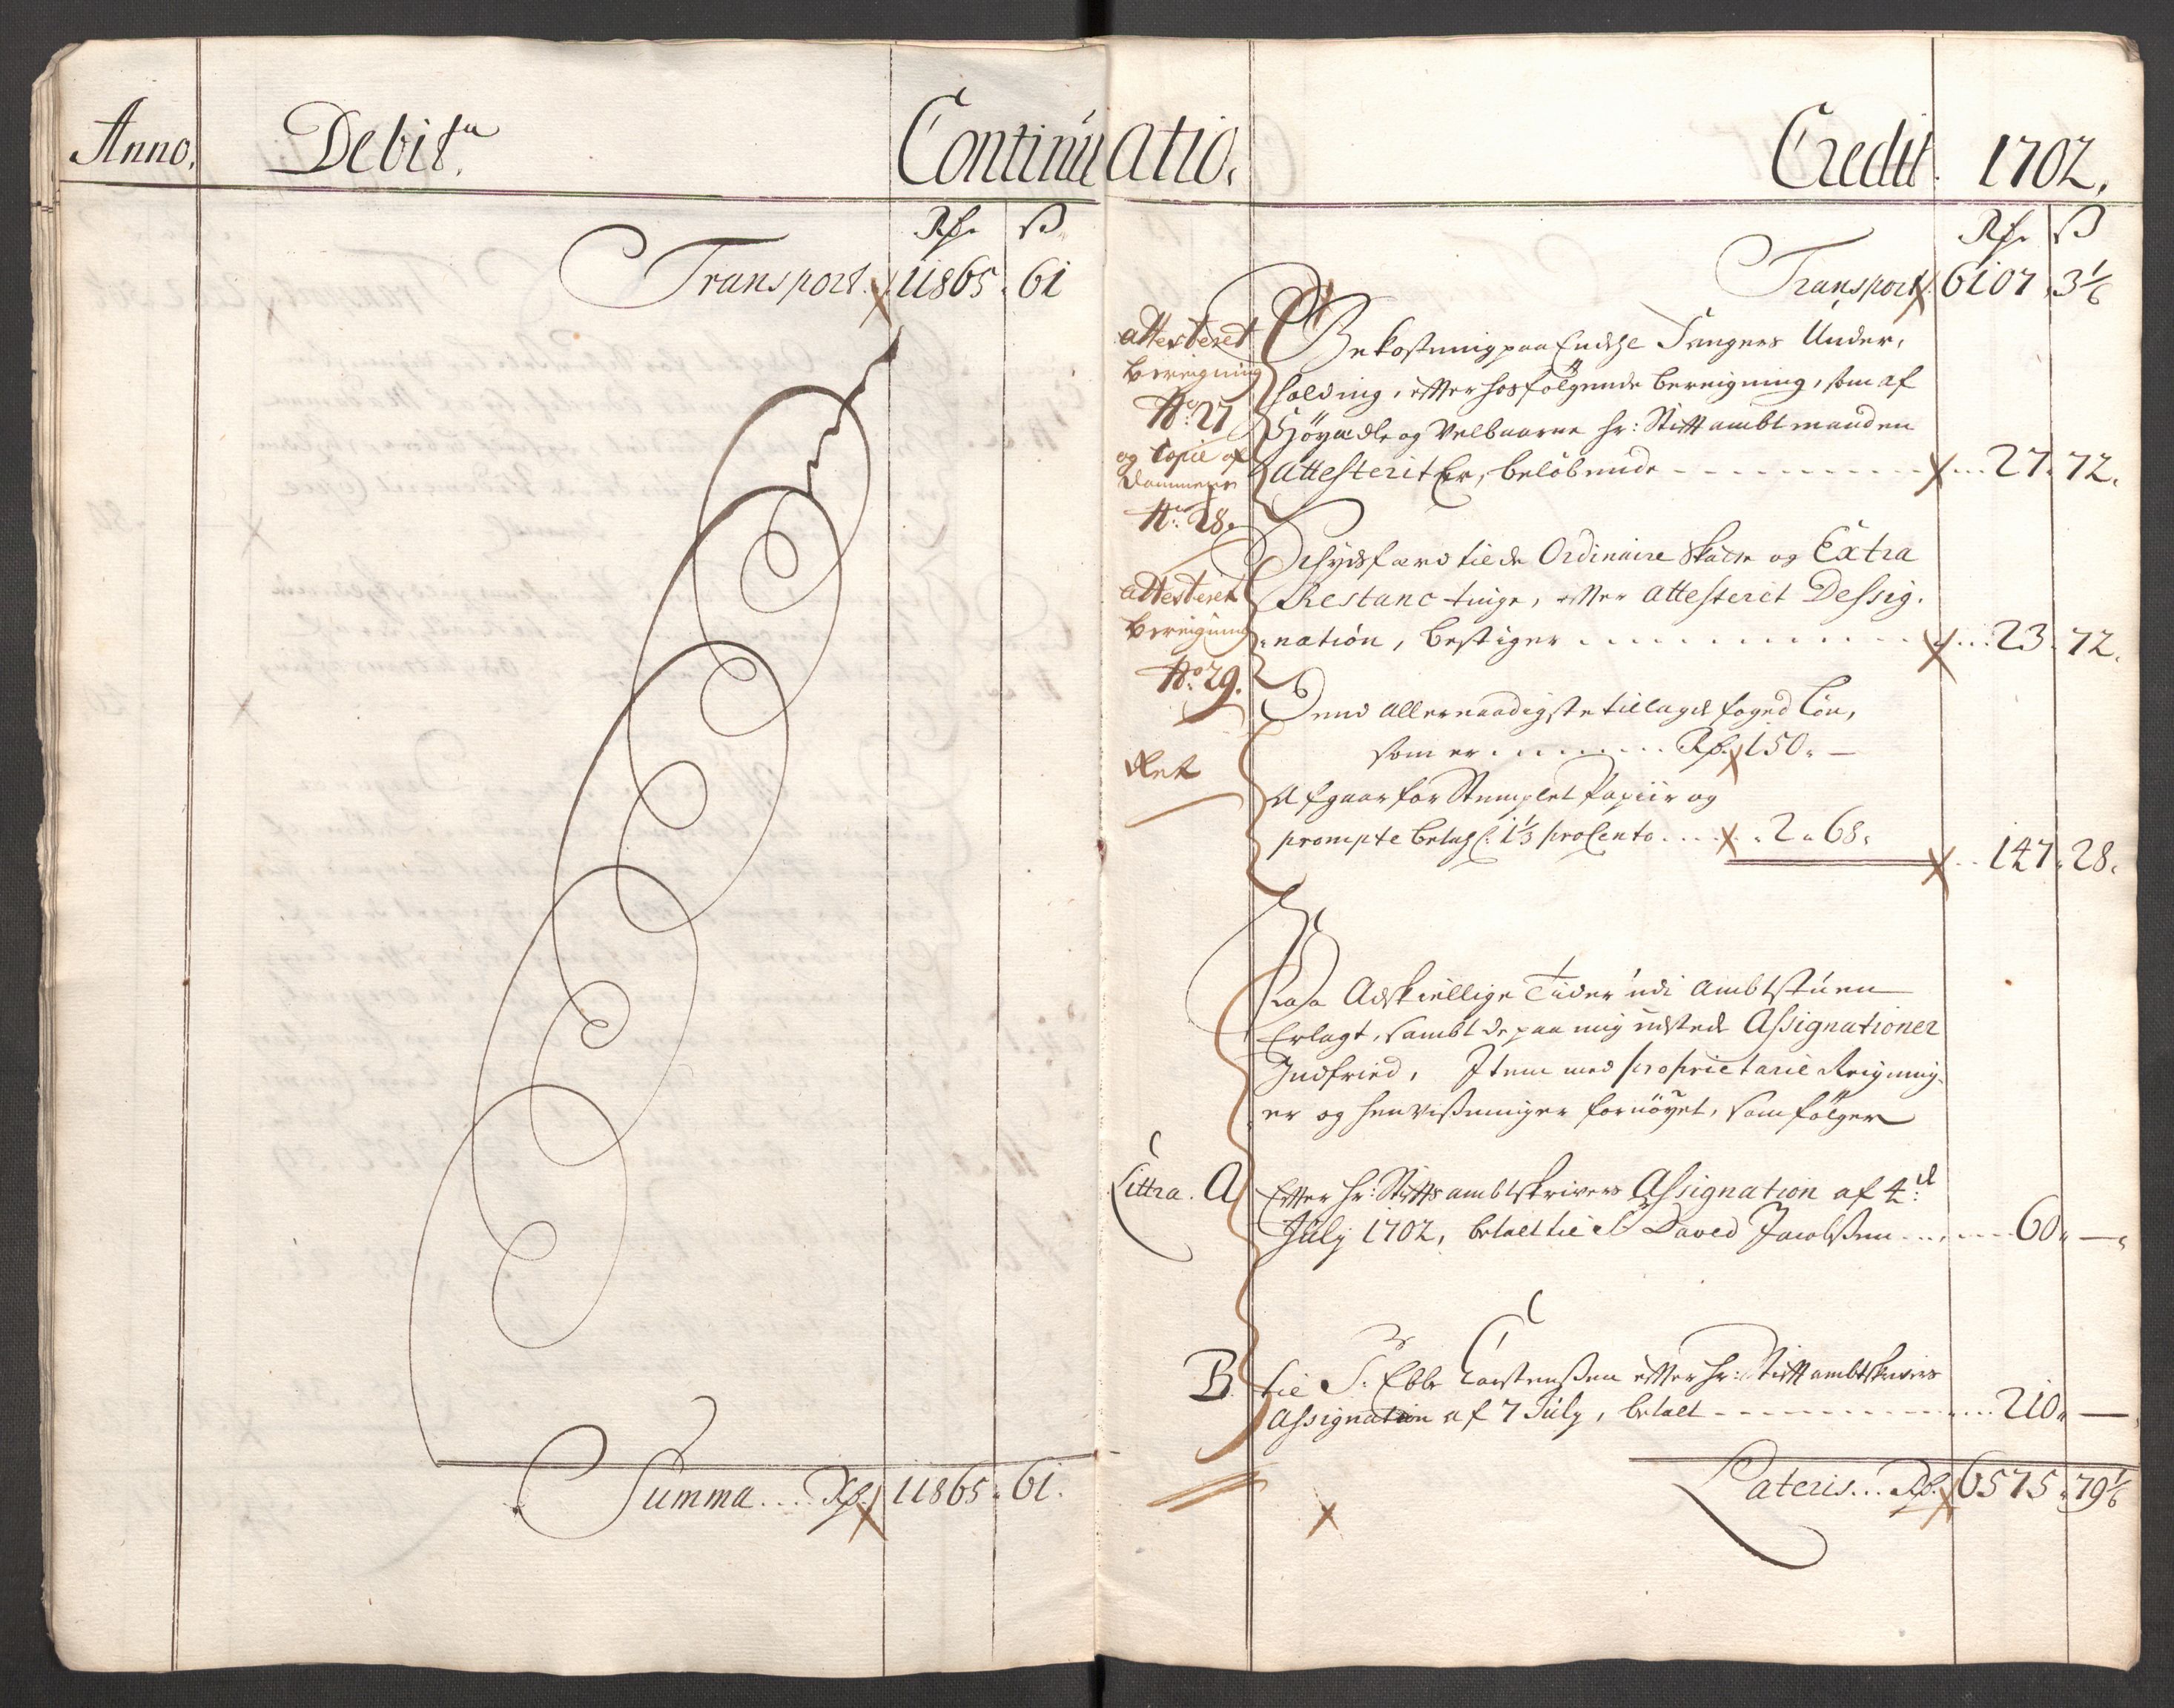 Anno. Debit.
Continuatio.
Credit. 1702.
Rd. ß
Transport. 11865. 61
Summa... Rd. 11865. 61.
Rd. ß
Transport. 6107. 3 1/6
Attesteret
bereigning
No. 27
og Copie af
dommene
No. 28.
Bekostning paa Endehl Fangers Under,
holding, efter hosfølgende bereigning, som af
Høyædle og Velbaarne hr: Stiftambtmanden
Attesterit Er, beløbende - - - 27. 72.
Attesteret
bereigning
No. 29.
Schydsferd til de Ordinaire Skatte og Extra
Restanc tinge, efter attesterit Dessig-
nation, bestiger . . . 23. 72.
Ret
Dend allernaadigste tillagde foged Løn,
som er . . . Rd. 150. —
Afgaar for Stemplet Papiir og
prompte betahl: 1 1/3 proCento . . . 2. 68.
147. 28.
Paa Adskiellige Tider udi Ambtstuen
Erlagt, sambt de paa mig udstede Assignationer
Indfried, Item med proprietarie Reigning-
er og henvisninger fornøyet, som følger
Littra. A
Efter hr: Stiftsambtskrivers Assignation af 4de
July 1702, betalt til Sr. David Jacobsen . . . 60. —
B.
til Sr. Ebbe Carstensen efter hr: Stiftambtskrivers
Assignation af 7 July, betalt - - - 210. —
Lateris... Rd. 6575. 79 1/6